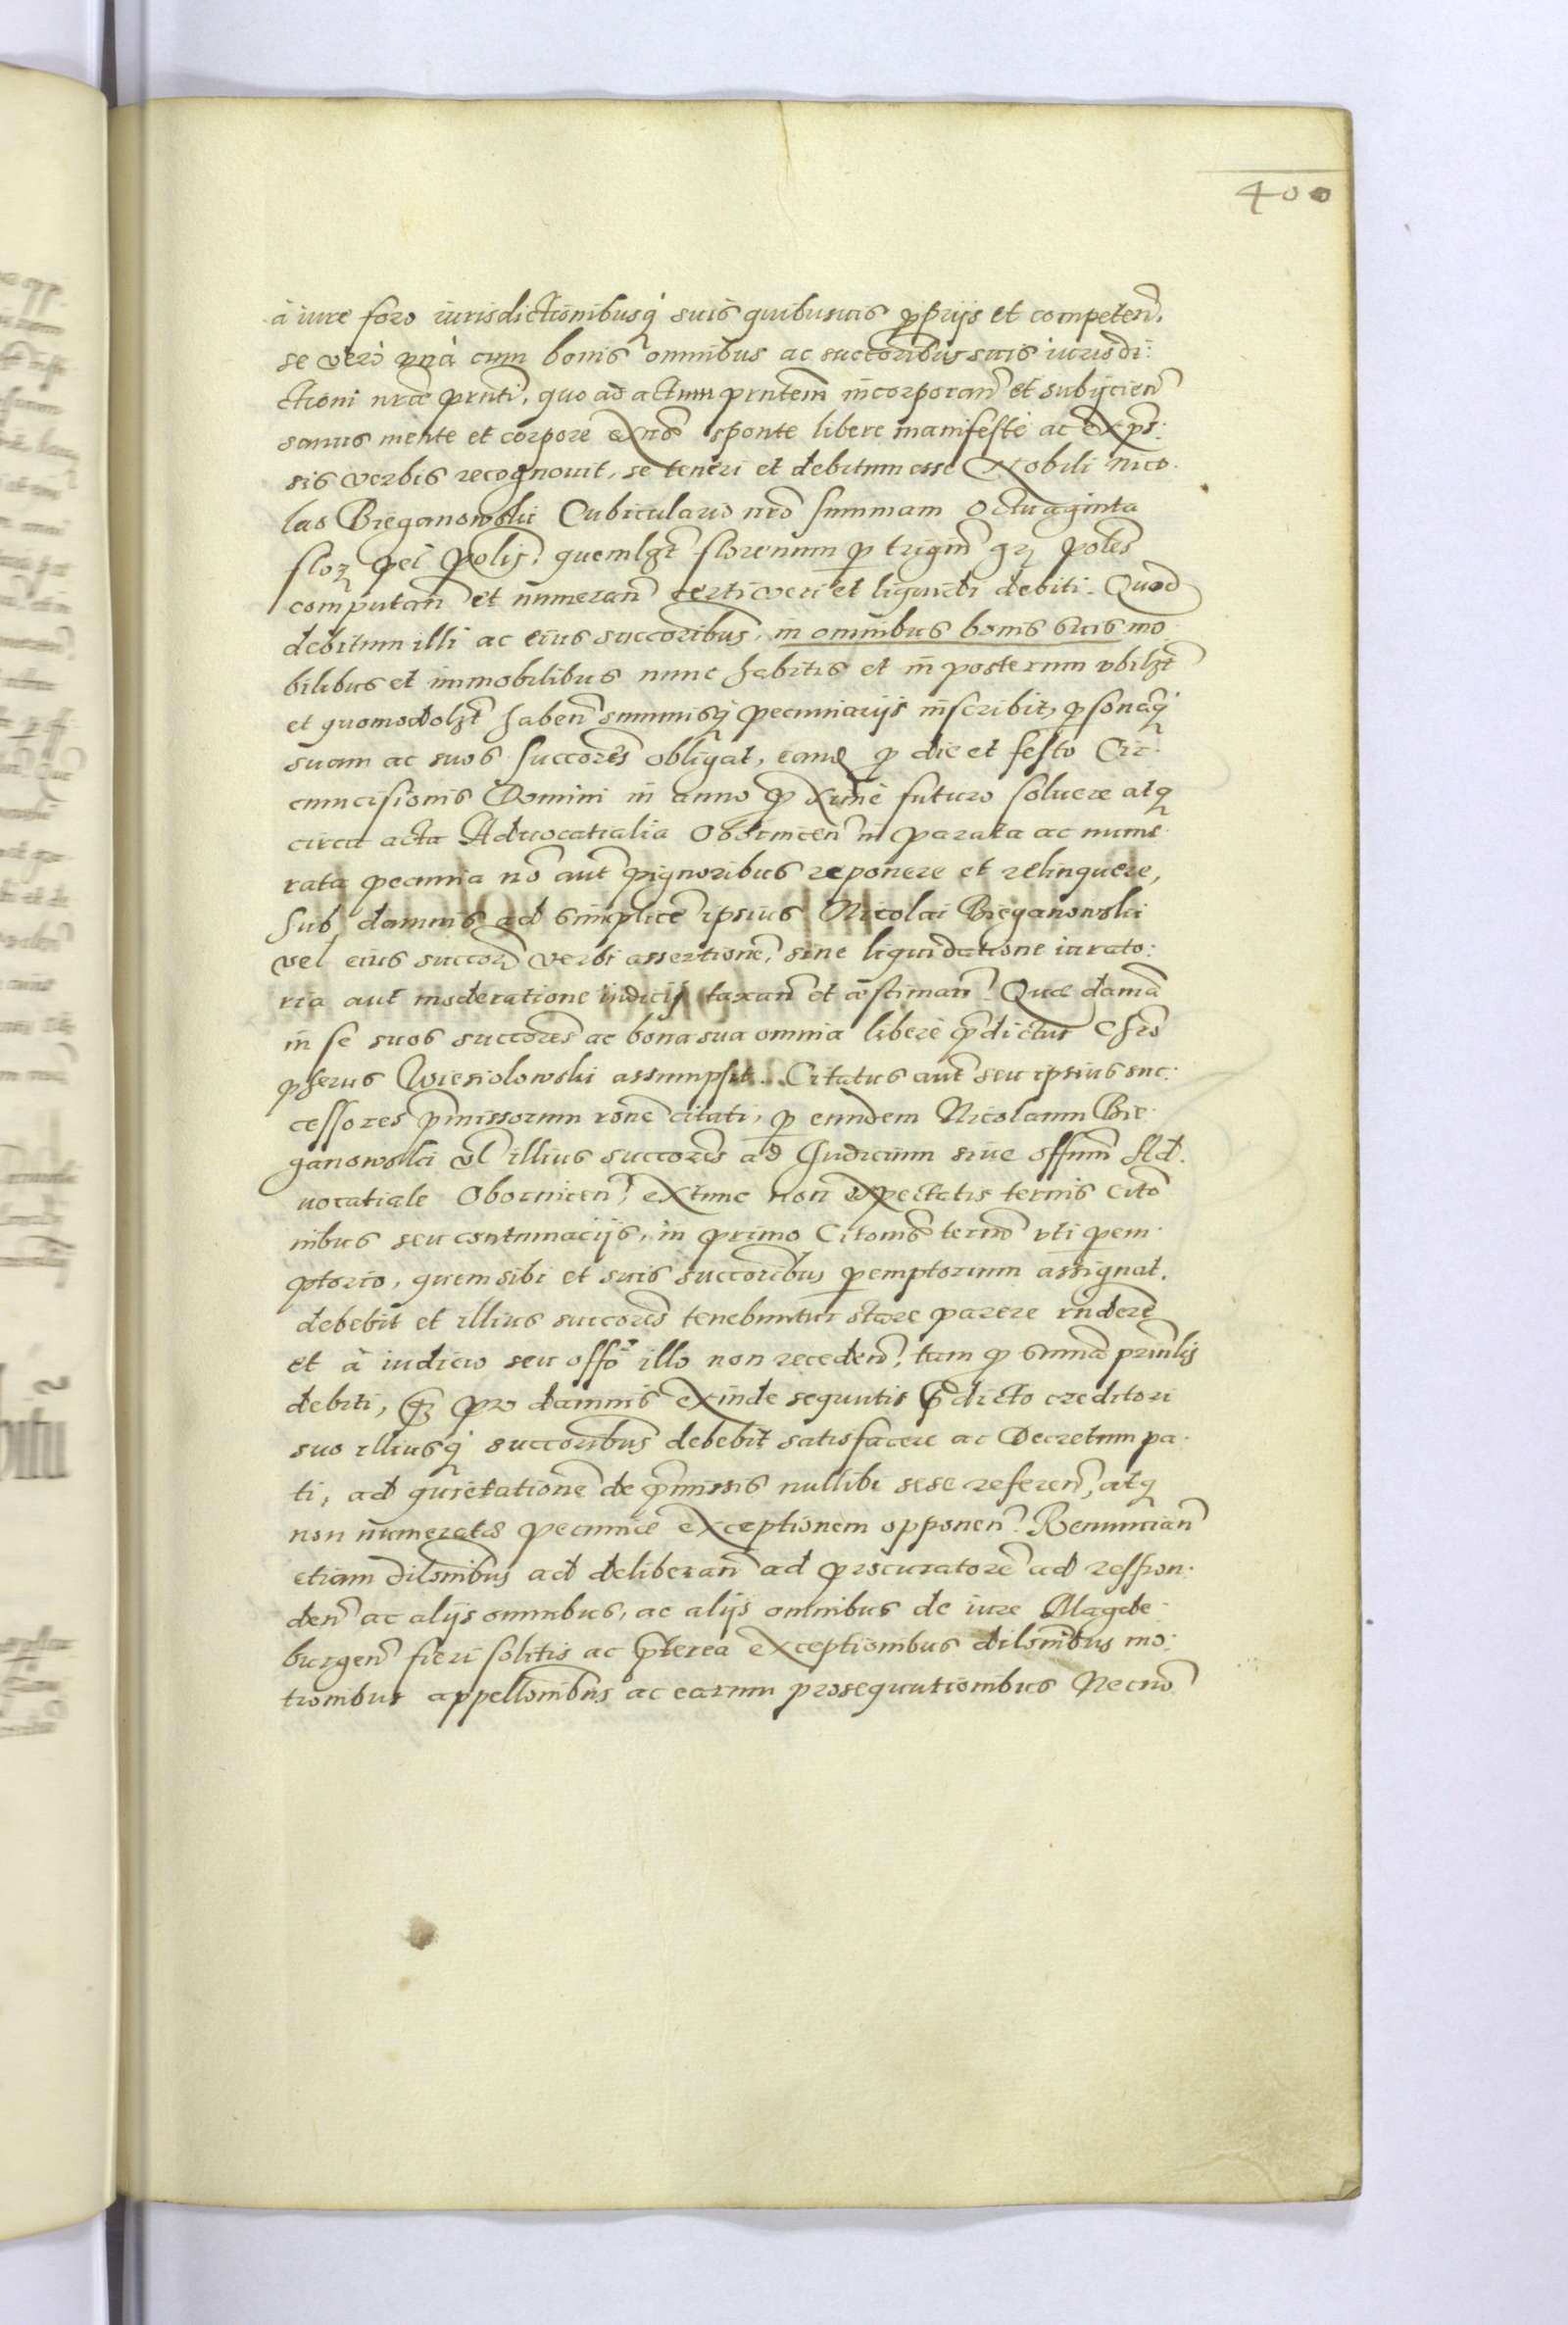 400
à iure foro iurisdictionibusq suis quibusuis pprijs et competeñ.
se verò unà cum bonis omnibus ac succoribus suis iurisdi:
ctioni nrae prnti, quo ad actum prntem incorporañ et subijcieñ
sanus mente et corpore exñs sponte libere manifeste ac expr:
sis verbis recognouit, se teneri et debitum esse Nobili Nico
lao Bieganowski Cubiculario nro summam octuaginta
flor pel polis. quemlzt florenum p trigin gr poles
computañ et numerañ certi veri et liquidi debiti. Quod
debitum illi ac eius succoribus, in omnibus bonis suis mo
bilibus et immobilibus nunc habitis et in posterum vbilzt
et quomodolzt habeñ summisq pecuniarijs inscribit, psonaq
suam ac suos succores obligat, eamq p die et festo Cir:
cumcisionis Domini in anno pxime futuro soluere atq
circa acta Aduocatialia Obornicen in parata ac nume
rata pecunia nõ aut pignoribus reponere et relinquere,
Sub damnis ad simplice ipsius Nicolai Bieganowski
vel eius succor verbi assertione, sine liquidatione iurato:
ria aut moderatione iudicij taxañ et aestimañ. Quae damã
in se suos succores ac bona sua omnia libere pdictus Chro
pherus Wiesiolowski assumpsit. Citatus aut seu ipsius suc:
cessores pmissorum rone citati, p eundem Nicolaum Bie
ganowski vl illius succores ad Iudicium siue offum Ad.
uocatiale Obornicen, extunc non expectatis ternis cito
nibus seu contumacijs, in primo citonis termo vti pem
ptorio, quem sibi et suis succoribus pemptorium assignat.
debebit et illius succores tenebuntur stare parere rndere
et à iudicio seu offo illo non recedeñ, tam p summa prinlis
debiti, q pro damnis exinde sequutis pdicto creditori
suo illiusq succoribus debebit satisfacere ac Decretum pa
ti, ad quietatione de pmissis nullibi sese refereñ, atq
non numeratae pecuniae exceptionem opponeñ. Renuncian
etiam dilonibus ad deliberañ ad procuratore ad respon
deñ ac alijs omnibus, ac alijs omnibus de iure Magde
burgen fieri solitis ac pterea exceptionibus dilonibus mo:
tionibus appellonibus ac earum prosequutionibus Necnõ